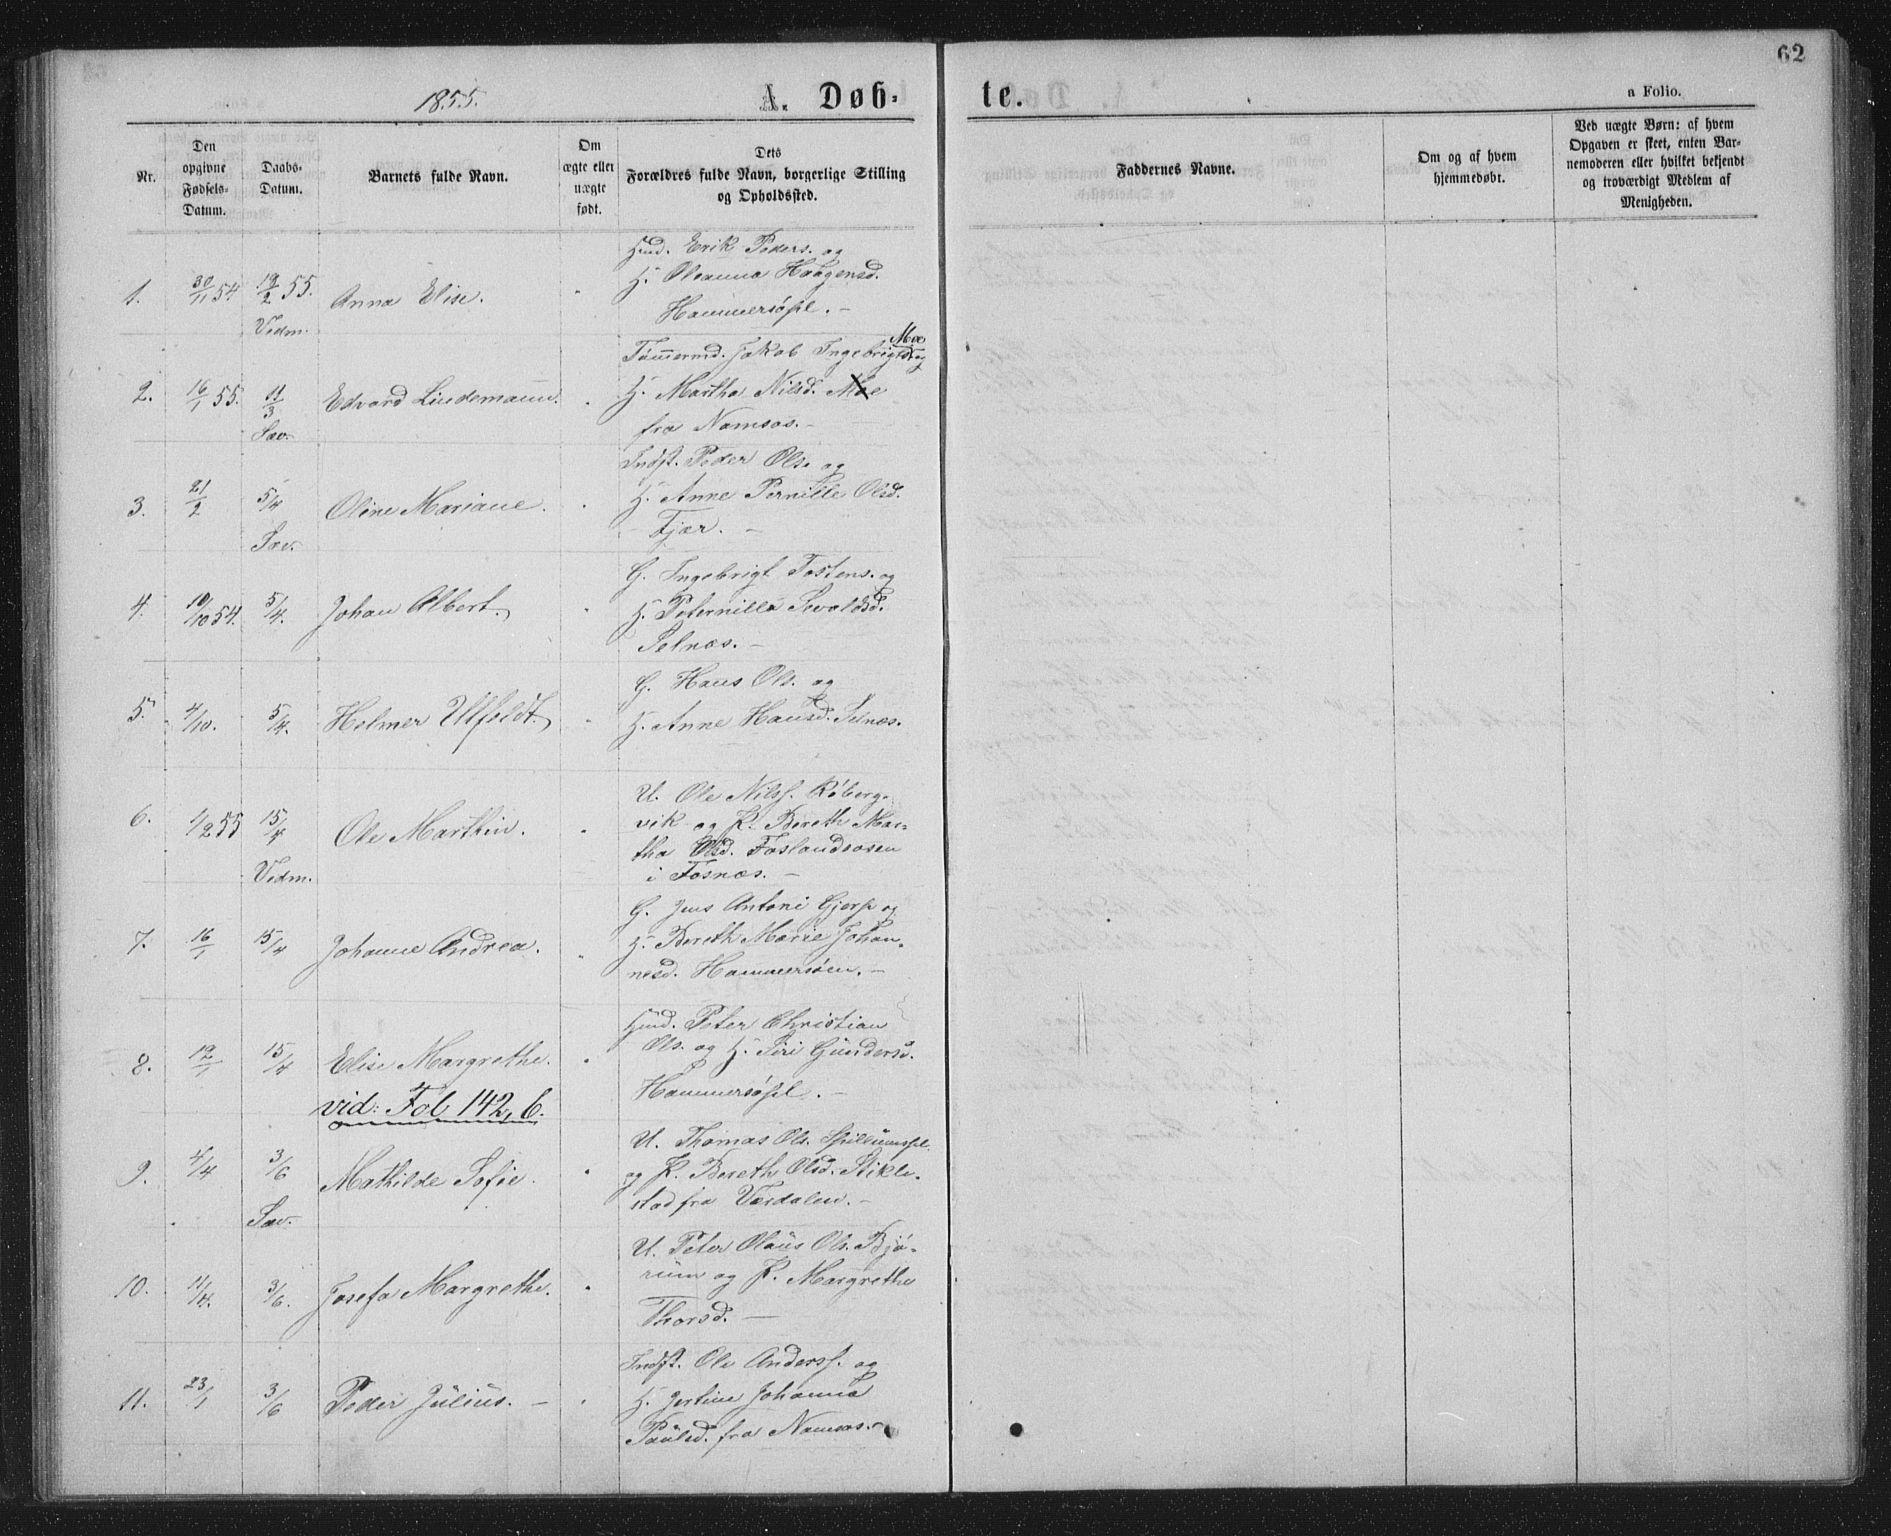 62
1855.
A. Døb-
te.
a Folio.
Nr.
Den
opgivne
Fødsels-
Datum.
Daabs-
Datum.
Barnets fulde Navn.
Om
ægte eller
uægte
født.
Dets
Forældres fulde Navn, borgerlige Stilling
og Opholdssted.
Faddernes Navne.
Om og af hvem
hjemmedøbt.
Ved uægte Børn: af hvem
Opgaven er skeet, enten Bar-
nemoderen eller hvilket bekjendt
og troværdigt Medlem af
Menigheden.
1. 30/11 54 19/2 55. Anna Elise.
Vedm.
Hmd. Erik Peders. og
H. Oleanna Haagensd.
Hammersøpl. -
2. 16/1 55. 11/3 Edvard Lindemann.
Sæv.
Tømermd. Jakob Ingebrigts. Moe og
H. Martha Nilsd. Moe
fra Namsos. -
3. 21/2 5/4 Oline Mariane.
Sæv.
Indst. Peder Ols. og
H. Anne Pernille Olsd.
Fjær. -
4. 10/10 54. 5/4. Johan Albert.
G. Ingebrigt Tostens. og
H. Peternilla Sivaldsd.
Selnæs. -
5. 4/10. 5/4. Holmer Ulfoldt.
G. Hans Ols. og
H. Anne Hansd. Selnæs.
6. 1/2 55 15/4 Ole Marthin.
Vedm.
U. Ole Nilss. Røberg-
vik og P. Bereth Mar-
tha Olsd. Foslandsosen
i Fosnæs. -
7. 16/1 15/4 Johanne Andrea.
G. Jens Antoni Gjers. og
H. Bereth Marie Johan-
nesd. Hammersøen. -
8. 12/1 15/4 Elise Margrethe.
vid: Fol 142, 6.
Hmd. Peter Christian
Ols. og H. Siri Gundersd.
Hammersøpl. -
9. 4/4 3/6 Mathilde Sofie.
Sæv.
U. Thomas Ols. Spillumspl.
og P. Bereth Olsd. Stikle-
stad fra Værdalen. -
10. 11/4. 3/6. Josefa Margrethe.
U. Peter Olaus Ols. Bjø-
rum og P. Margrethe
Thorsd. -
11. 23/1 3/6 Peder Julius. -
Indst. Ole Anderss. og
H. Jertine Johanna
Paulsd. fra Namsos. -